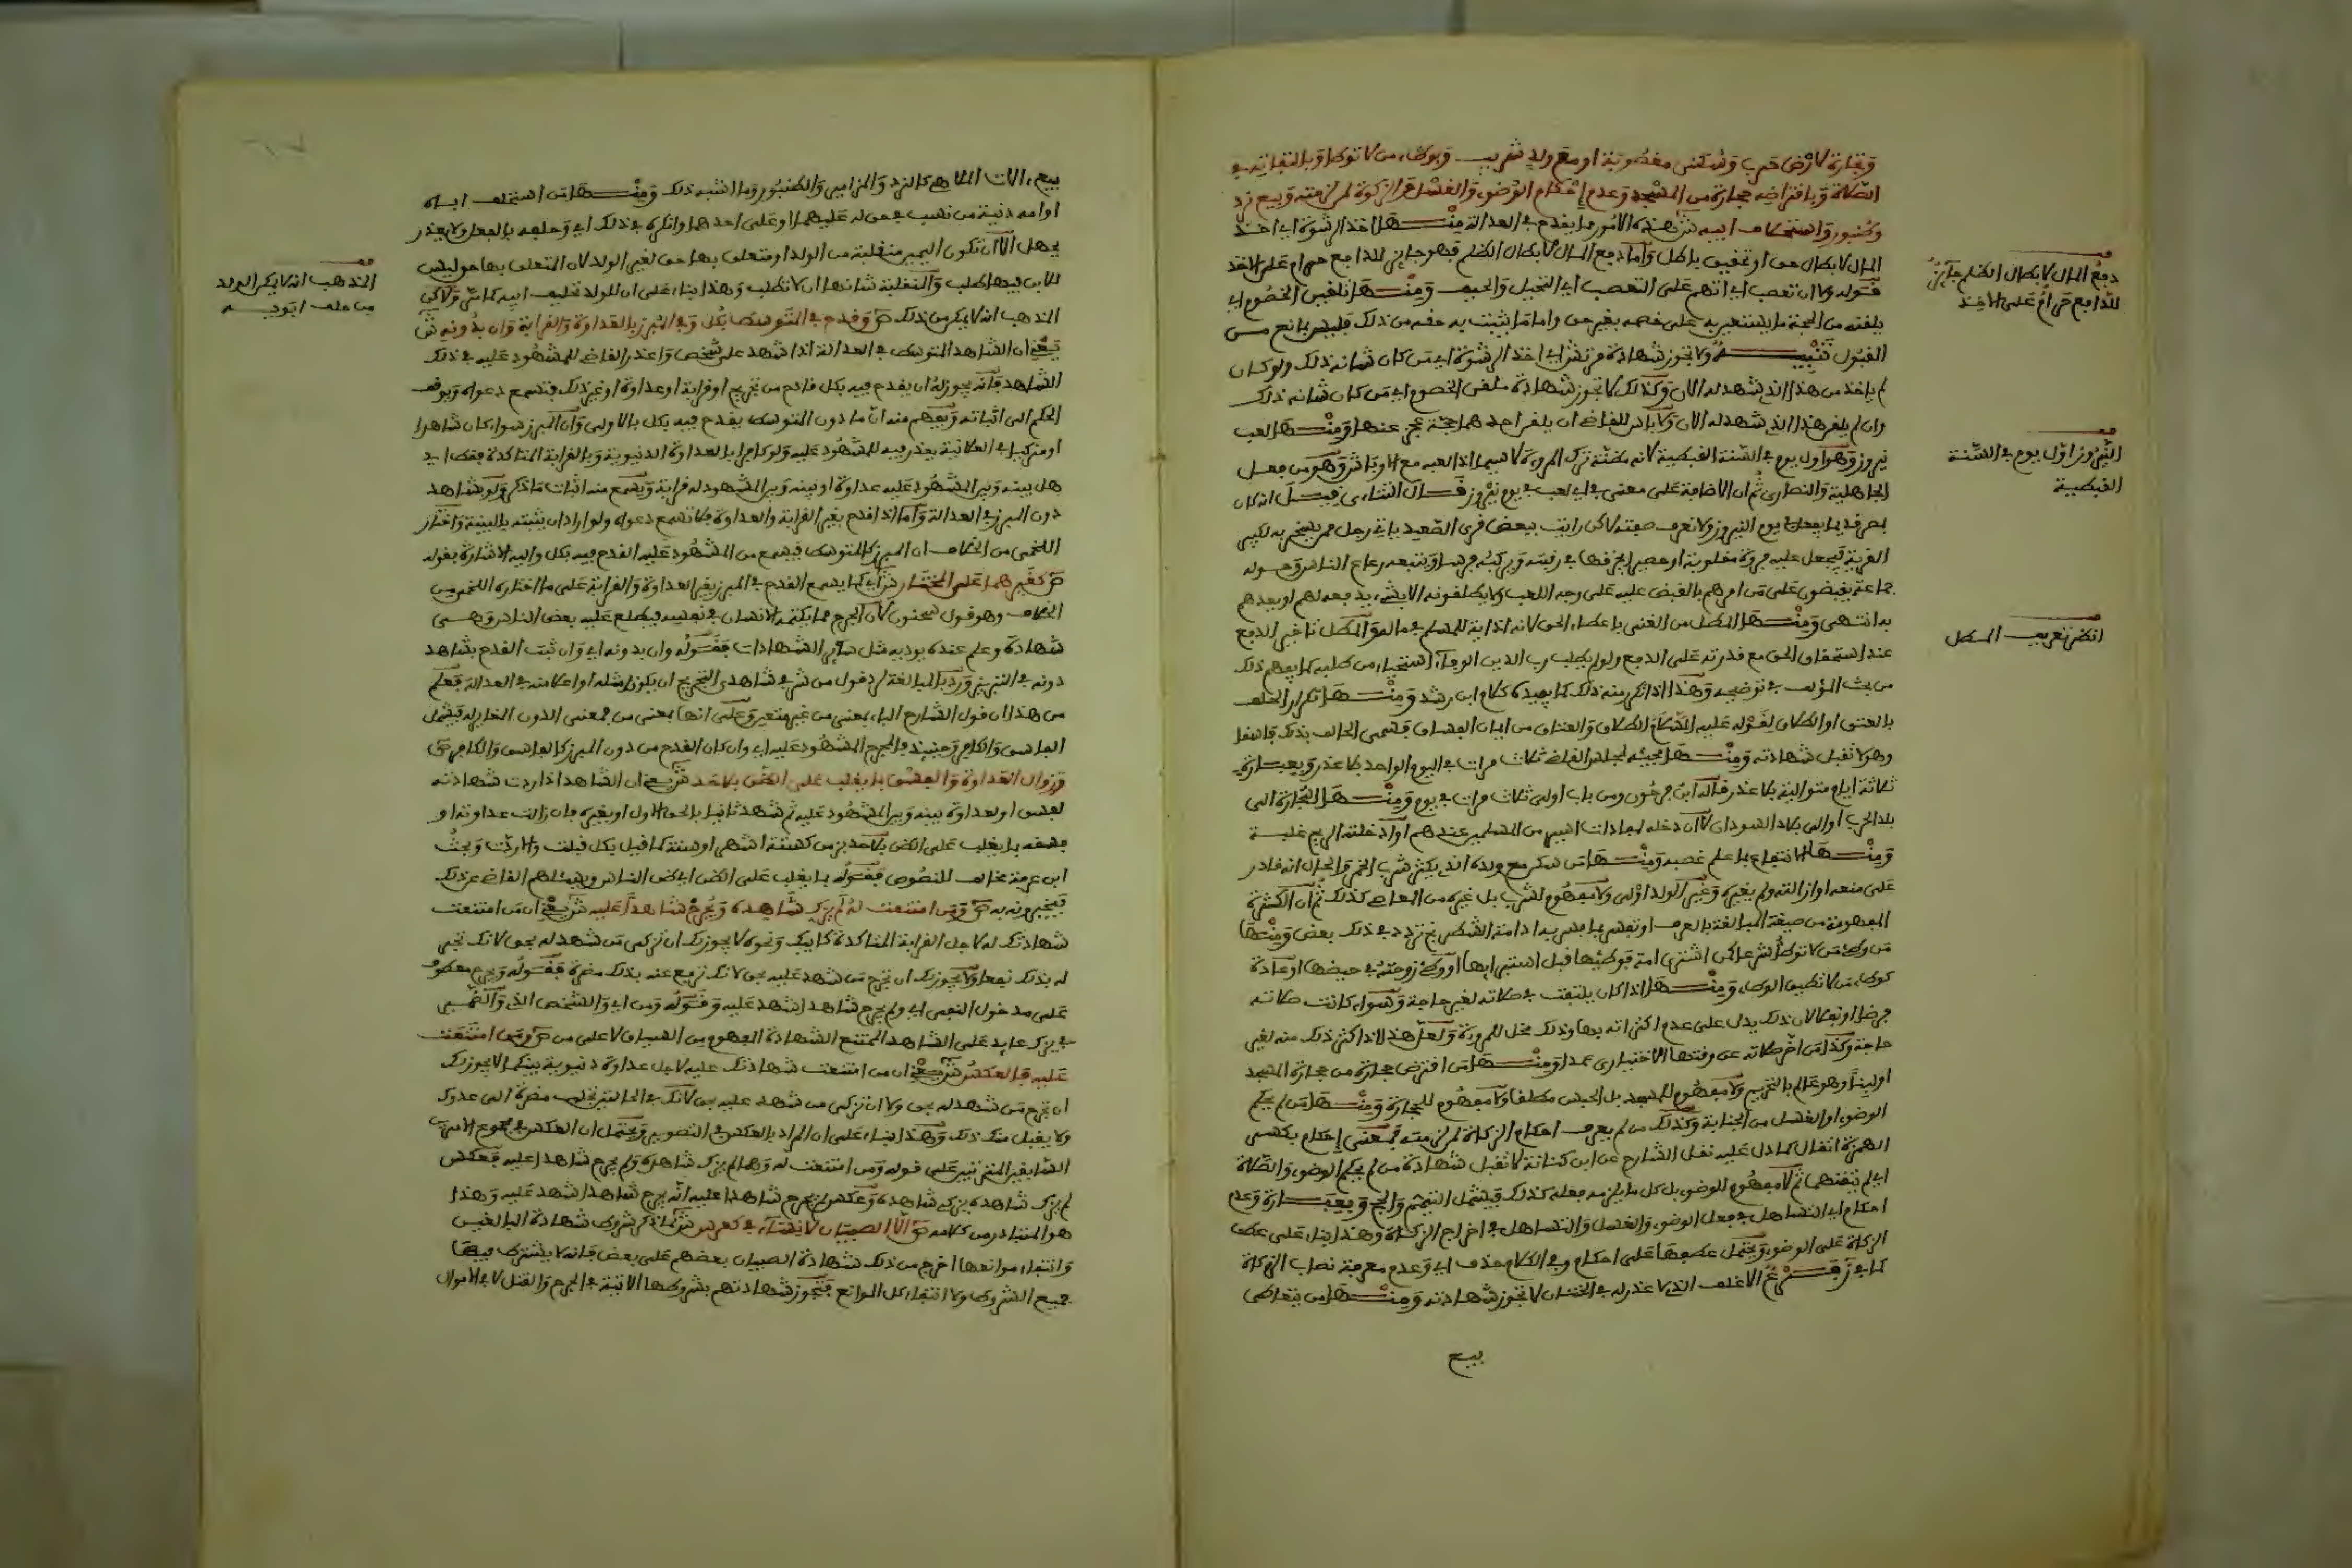 وتجارة لارض حرب وسكنى مغصوبة او مع ولد شريب وبوطء من لا توطا وبالتفاته في
الصلاة وباقتراضه حجارة من المسجد وعدم احكام الوضوء والغسل والزكوة لمن لزمته وبيع نرد
وطنبور واستحلاف ابيه ش هذه الامور مما يقدح في العدالة منها اخذ الرشوة اي اخذ
المال لابطال حق او تحقيق باطل واما دفع المال لابطال الظلم فهو جايز للدافع حرام على الاخذ
ومنها تلقين الخصوم اي
يلقنه من الحجة ما يستعين به على خصمه بغير حق واما ما يثبت به حقه من ذلك فليس بمانع من
القبول تنبيه ولا تجوز شهادة مرتش اي اخذ الرشوة اي من كان شانه ذلك ولو كان
لم ياخذ من هذا الذي شهد له الان وكذلك لا تجوز شهادة ملقن الخصوم اي من كان شانه ذلك
وان لم يلقن هذا الذي شهد له الان ولا باس للقاضي ان يلقن احدهما حجة عجز عنها ومنها لعب
نيروز وهو اول يوم في السنة القبطية لانه مظنة ترك المروءة لا سيما اذا لعبه مع الاوباش وهو من فعل
الجاهلية والنصارى ثم ان الاضافة على معنى في اي لعب في يوم نيروز قال الشارح قيل انه كان
بمصر قديما يفعل يوم النيروز ولا تعرف صفته لاكن رايت ببعض قرى الصعيد ياتي رجل ممن يسخر به لكبير
القرية فيجعل عليه فروة مقلوبة او حصيرا يخرقها في رقبته ويركبه فرسا ويتبعه رعاع الناس وحوله
جماعة يقبضون على من امرهم بالقبض عليه على وجه اللعب ولا يطلقونه الا بشيء يدفعه لهم او يعدهم
به انتهى ومنها المطل من الغني باعطاء الحق لانه اذاية للمسلم في ماله والمطل تاخير الدفع
عند استحقاق الحق مع قدرته على الدفع ولو لم يطلب رب الدين الوفاء استحياء من طلبه كما يفهم ذلك
من بحث المؤلف في توضيحه وهذا اذا تكرر منه ذلك كما يفيده كلام ابن رشد ومنها تكرار الحلف
بالعتق او الطلاق لقوله عليه السلام الطلاق والعتاق من ايمان الفساق فسمى الحالف بذلك فاسقا
وهو لا تقبل شهادته ومنها مجيئه لمجلس القاضي ثلاث مرات في اليوم الواحد بلا عذر وبعبارة
ثلاثة ايام متوالية بلا عذر قاله ابن فرحون ومن باب اولى ثلاث مرات في يوم ومنها التجارة الى
بلد الحرب او الى بلاد السودان لا ان دخله لمفادات اسير من المسلمين عندهم او ادخلته الريح غلبة
ومنها الانتفاع بما علم غصبه ومنها من سكن مع ولده الذي يكثر شرب الخمر والحال انه قادر
على منعه او ازالته ولم يغيره وغير الولد اولى ولا مفهوم للشرب بل غيره من المعاصي كذلك ثم ان الكثرة
المفهومة من صيغة المبالغة بالعرف او تفسر بما فسر به ادامة الشطرنج تردد في ذلك بعض ومنها
من وطئ من لا توطأ شرعا كمن اشترى امة فوطئها قبل استبرائها او وطئ زوجته في حيضها او عادة
كوطء من لا تطيق الوطء ومنها اذا كان يلتفت في صلاته لغير حاجة وسواء كانت صلاته
فرضا او نفلا لان ذلك يدل على عدم اكتراثه بها وذلك مخل للمروءة ولعل هذا اذا كثر ذلك منه لغير
حاجة وكذا من اخر صلاته عن وقتها الاختياري عمدا ومنها من اقترض حجارة من حجارة المسجد
او لبنا وهو عالم بالتحريم ولا مفهوم للمسجد بل الحبس مطلقا ولا مفهوم للحجارة ومنها من لم يحكم
الوضوء او الغسل من الجنابة وكذلك من لم يعرف احكام الزكاة لمن لزمته فمعنى احكام بكسر
الهمزة اتقان كما دل عليه نقل الشارح عن ابن كنانة لا تقبل شهادة من لم يحكم الوضوء والصلاة
اي لم يتقنهما ثم لا مفهوم للوضوء بل كل ما يلزمه فعله كذلك فيشمل التيمم والحج وبعبارة وعدم
احكام اي التساهل في فعل الوضوء والغسل والتساهل في اخراج الزكاة وهذا بناء على عطف
الزكاة على الوضوء ويحتمل عطفها على احكام وفي الكلام حذف اي وعدم معرفة نصاب الزكاة
فرع الاغلف الذي لا عذر له في الختان لا تجوز شهادته ومنها من يتعاطى
بيع
دفع المال لابطال الظلم جايز
للدافع حرام على الاخذ
النيروز اول يوم في السنة
القبطية
انظر تعريف المطل
بيع الات الملاهي كالنرد والمزامير والطنبور وما اشبه ذلك ومنها من استحلف اباه
او امه دنية من نسب في حق له عليهما او على احدهما وانكره في ذلك اي وحلفه بالفعل ولا يعذر
بجهل الا ان تكون اليمين منقلبة من الولد او متعلق بها حق لغير الولد لان المتعلق بها حق ليس
للابن فيها طلب والمنقلبة شانها ان لا تطلب وهذا بناء على ان للولد تحليف ابيه كما مر ولاكن
المذهب انه لا يمكن من ذلك ص وقدح في المتوسط بكل وفي المبرز بالعداوة والقرابة وان بدونه ش
يعني ان الشاهد المتوسط في العدالة اذا شهد على شخص واعذر القاضي للمشهود عليه في ذلك
الشاهد فانه يجوز له ان يقدح فيه بكل قادح من تجريح او قرابة او عداوة او غير ذلك فتسمع دعواه ويوقف
الحكم الى اثباته ويفهم منه ان ما دون المتوسط يقدح فيه بكل بالاولى وان المبرز سواء كان شاهدا
او مزكيا في العلانية يعذر فيه للمشهود عليه ولو كافرا بالعداوة الدنيوية وبالقرابة المتاكدة فقط اي
هل بينه وبين المشهود عليه عداوة او بينه وبين المشهود له قرابة ويسمع منه اثبات ما ذكر ولو بشاهد
دون المبرز في العدالة واما اذا قدح بغير القرابة والعداوة فلا تسمع دعواه ولو اراد ان يثبته بالبينة واختار
اللخمي من الخلاف ان المبرز كالمتوسط فيسمع من المشهود عليه القدح فيه بكل واليه الاشارة بقوله
ص كغيرهما على المختار ش اي كما يسمع القدح في المبرز بغير العداوة والقرابة على ما اختاره اللخمي من
الخلاف وهو قول سحنون لان الجرح مما يكتمه الانسان في نفسه فيطلع عليه بعض الناس وهي
شهادة وعلم عنده يوديه مثل ساير الشهادات فقوله وان بدونه اي وان ثبت القدح بشاهد
من هذا ان قول الشارح الباء بمعنى من غير متعين وعلى انها بمعنى من فمعنى الدون المغاير له فيشمل
الفاسق والكافر
ص وزوال العداوة والفسق بما يغلب على الظن بلا حد ش يعني ان الشاهد اذا ردت شهادته
لفسق او لعداوة بينه وبين المشهود عليه ثم شهد ثانيا بالحق الاول او بغيره فان زالت عداوته او
فسقه بما يغلب على الظن بلا حد بزمن كستة اشهر او سنة كما قيل بكل قبلت والا ردت وبحث
ابن عرفة مخالف للنصوص فقوله بما يغلب على الظن اي ظن الناس ويسئلهم القاضي عن ذلك
فيخبرونه به ص ومن امتنعت له لم يزك شاهده ويجرح شاهدا عليه ش يعني ان من امتنعت
شهادتك له لاجل القرابة المتاكدة كابيك ونحوه لا يجوز لك ان تزكي من شهد له بحق لانك تجر
له بذلك نفعا ولا يجوز لك ان تجرح من شهد عليه بحق لانك تدفع عنه بذلك مضرة فقوله ويجرح معطوف
على مدخول النفي اي ولم يجرح شاهدا شهد عليه وقوله ومن اي والشخص الذي والضمير
في يزك عايد على الشاهد الممتنع الشهادة المفهوم من السياق لا على من ص ومن امتنعت
عليه فالعكس ش يعني ان من امتنعت شهادتك عليه لاجل عداوة دنيوية بينكما لا يجوز لك
ان تجرح من شهد له بحق ولا ان تزكي من شهد عليه بحق لانك في الحالتين تجلب مضرة الى عدوك
ولا يقبل منك ذلك وهذا بناء على ان المراد بالعكس في التصوير ويحتمل ان العكس في مجموع الامرين
السابقين المترتبين على قوله ومن امتنعت له وهما لم يزك شاهده ولم يجرح شاهدا عليه فعكس
لم يزك شاهده يزكي شاهده وعكس لم يجرح شاهدا عليه انه يجرح شاهدا شهد عليه وهذا
هو المتبادر من كلامه ص الا الصبيان لا نساء في كعرس ش لما ذكر شروط شهادة البالغين
وانتفاء موانعها اخرج من ذلك شهادة الصبيان بعضهم على بعض فانه لا يشترط فيها
جميع الشروط ولا انتفاء كل الموانع فتجوز شهادتهم بشروطها الاتية في الجرح والقتل لا في الاموال
المذهب انه لا يمكن الولد
من حلف ابويه